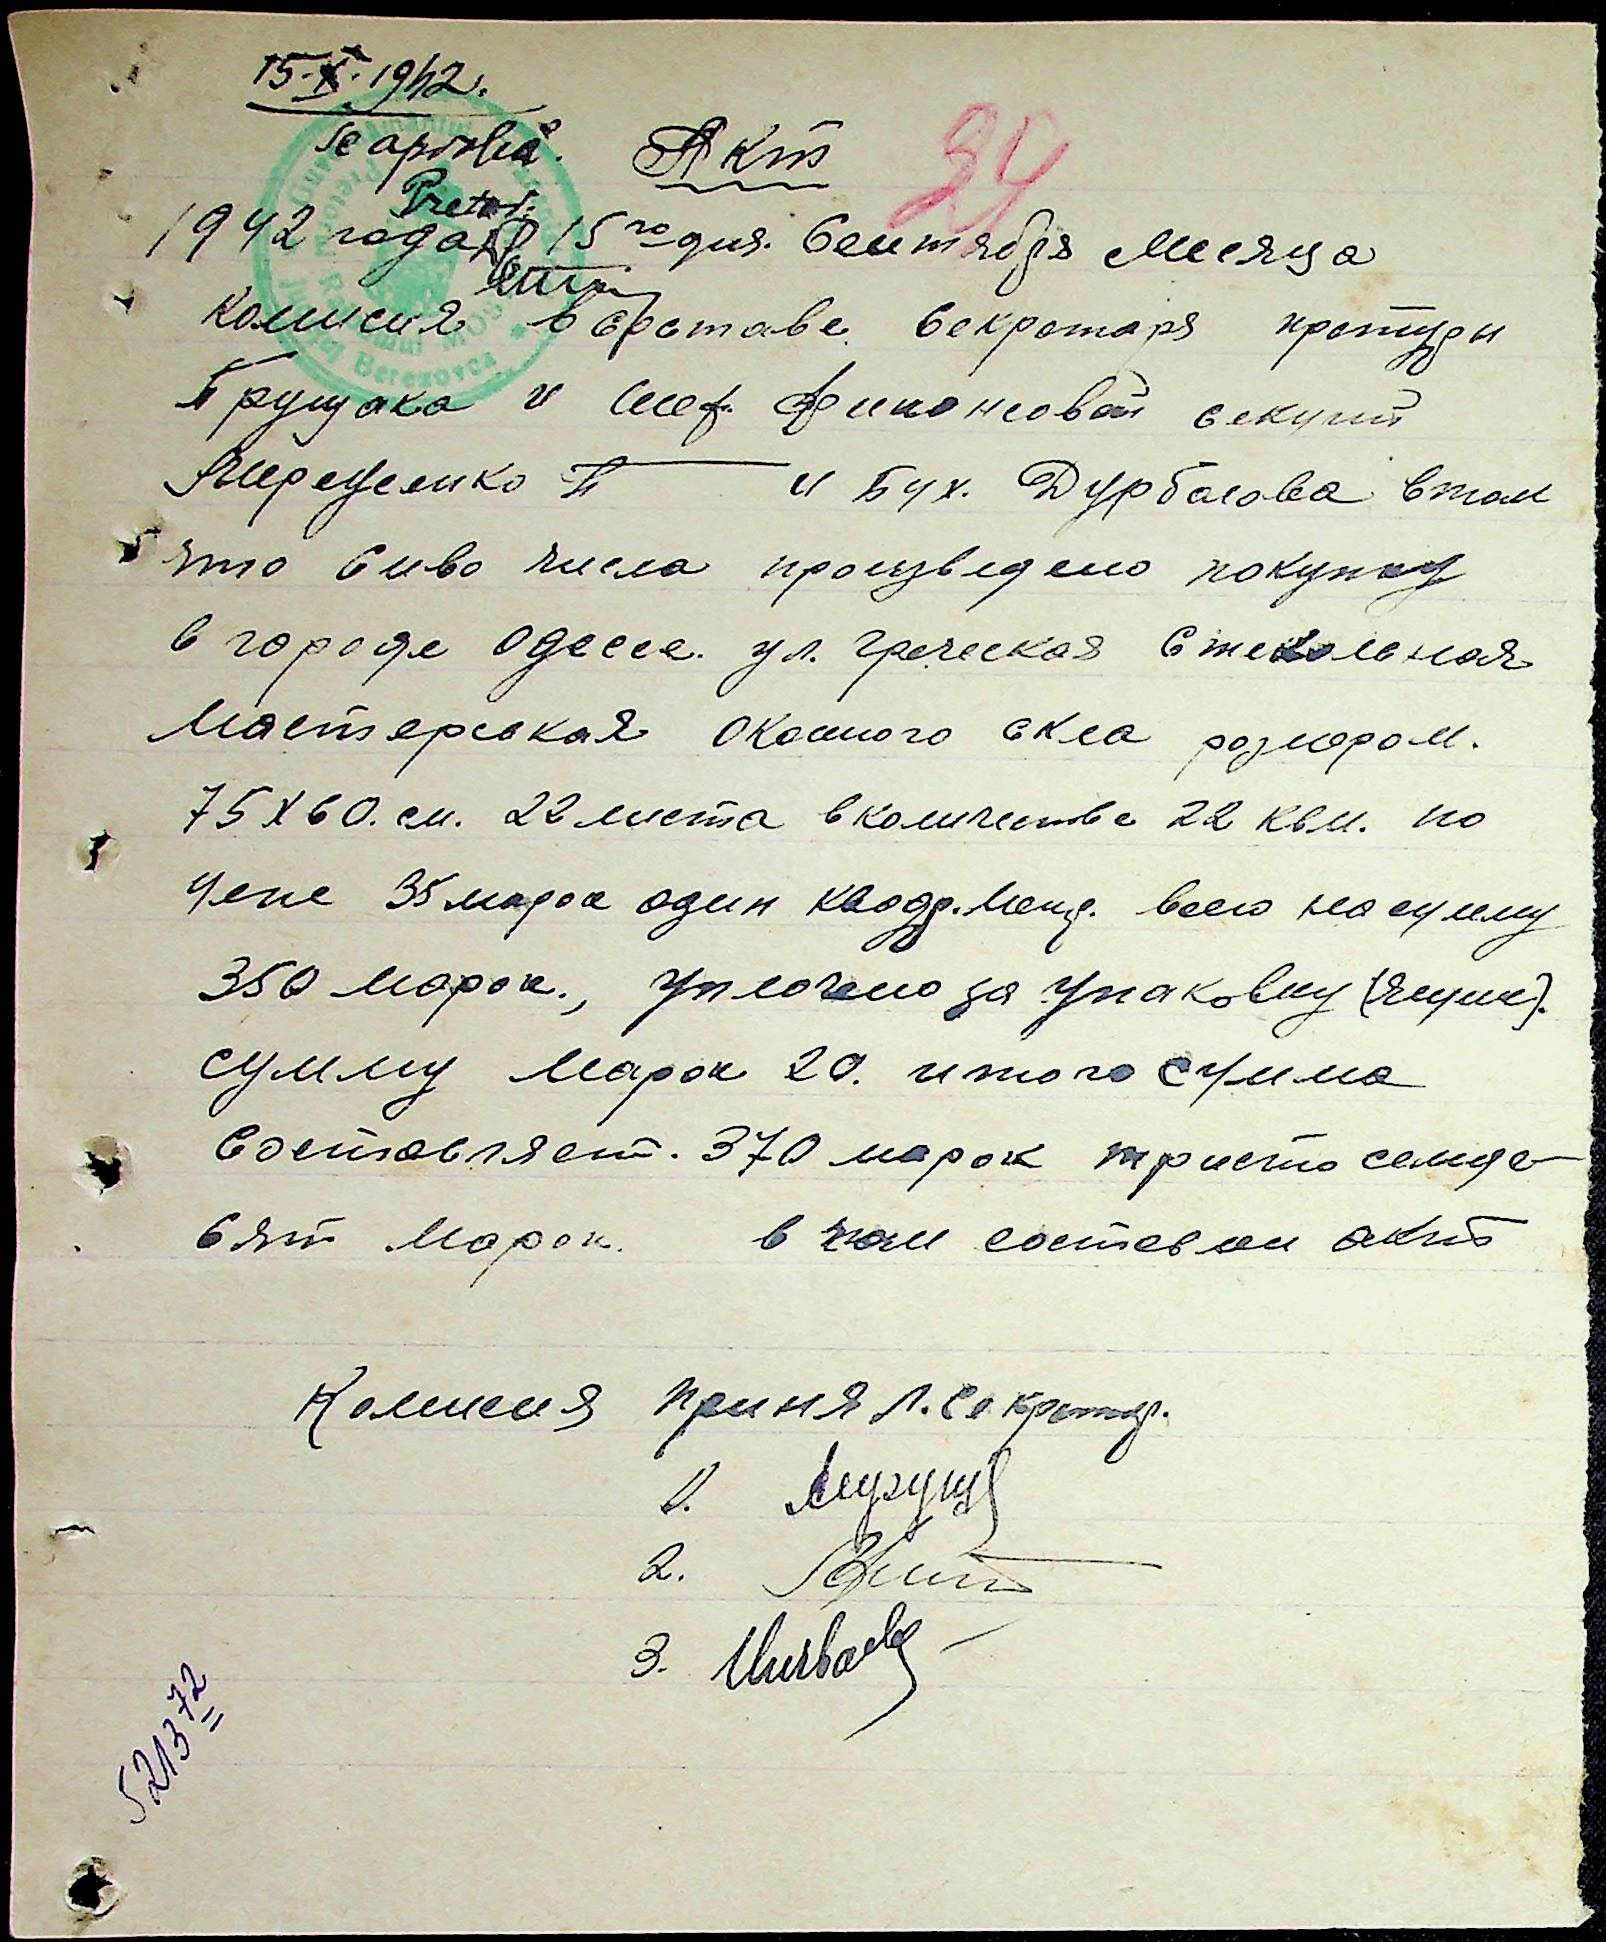 15.X.1942.
Se aprobă.
Акт
34
Pretor.
1942 года 15го дня. Сентября Месяца
Комисия в составе Секретаря претуры
Грушака и Шеф. Финансовой секции
Терещенко П и Бух. Дурбалова втом
что сиво числа произведено покупку
в городе Одессе. ул. Греческая Стекольная
Мастерская оконного скла розмером.
75 х 60. см. 22 листа вколичестве 22 квм. по
цене 35 марок один квадр. всего насумму
350 марок., Уплочено за Упаковку (Ящик).
сумму Марок 20. итого сумма
Составляет. 370 марок тристо семде
сят Марок. в чом составлен акт
Комисия Принял. Секретар.
1.
2.
3.
521372